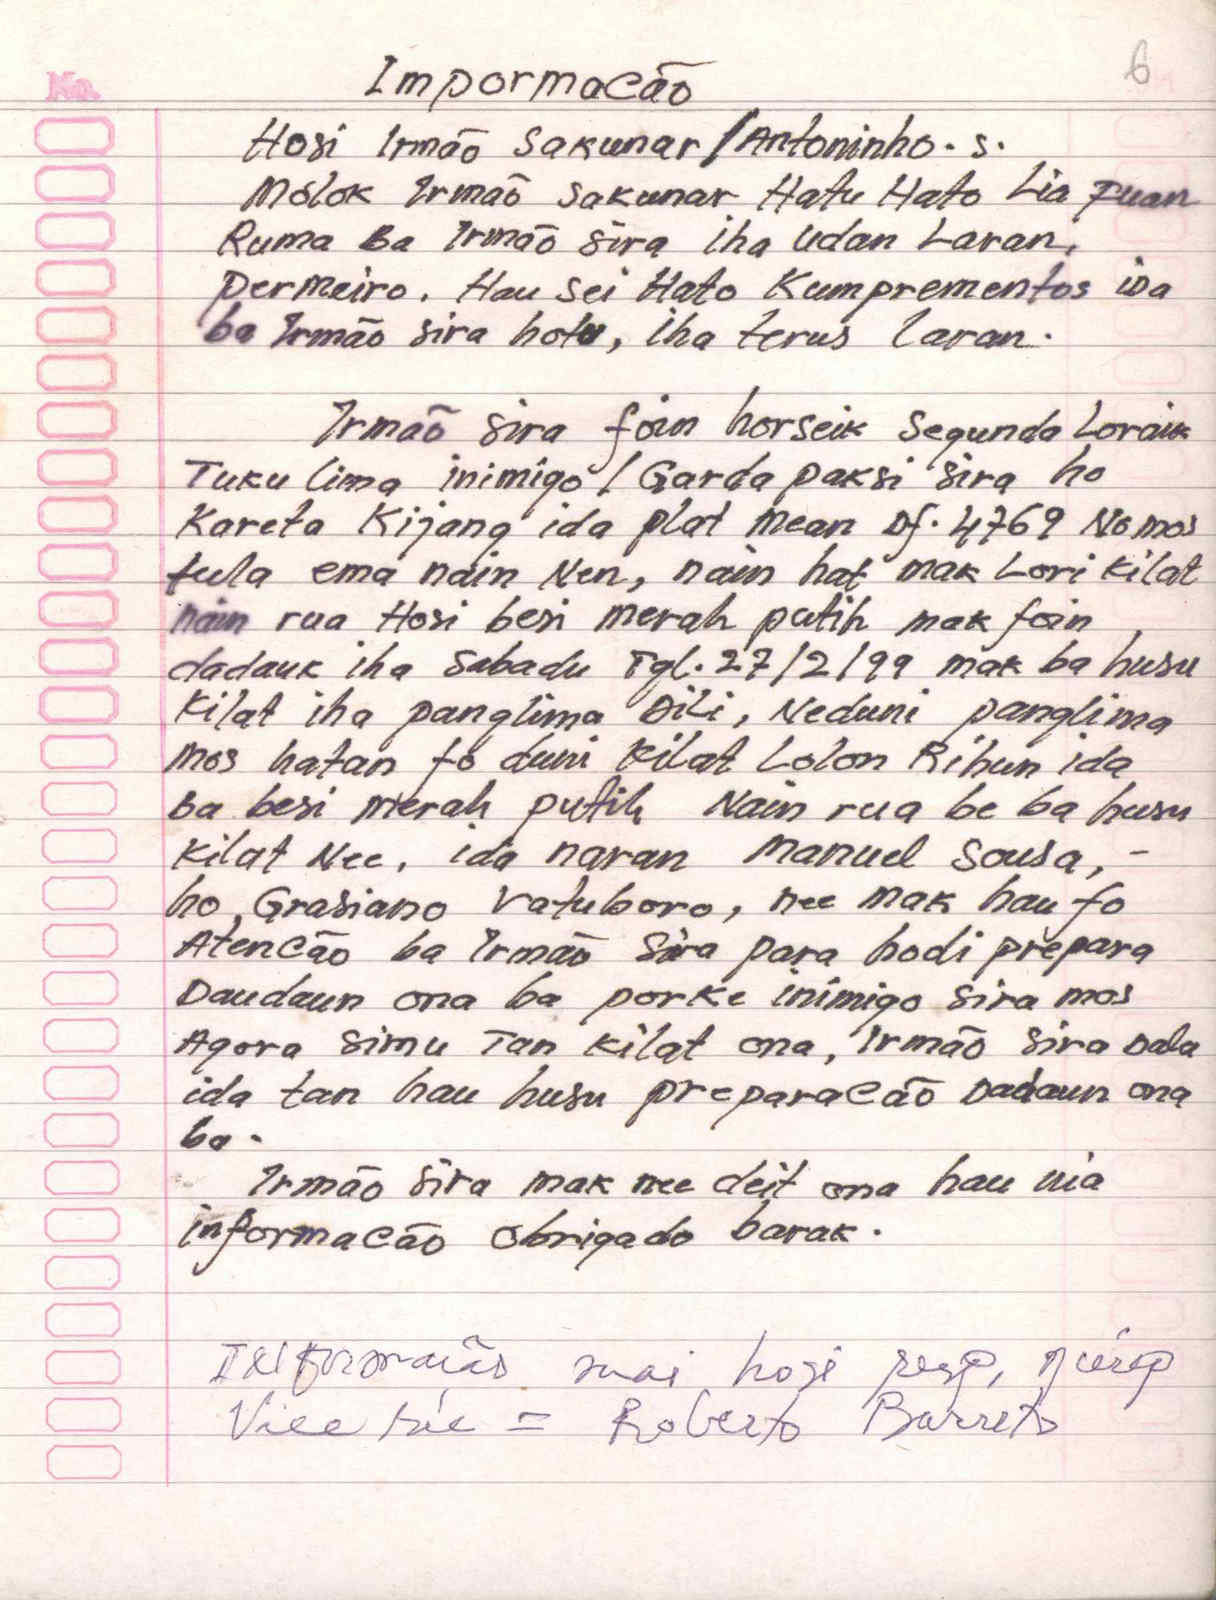 6
No.
Impormacão
Hosi Irmão Sakunar / Antoninho. s.
Molok Irmaõ Sakunar Hatu Hato Lia Fuan
Ruma Ba Irmão Sira iha udan Laran,
Permeiro. Hau sei Hato Kumprementos ida
ba Irmão sira hotu, iha terus laran.
Irmaõ sira foin horseik Segunda Loraik
Tuku lima inimigo / Garda paksi sira ho
Kareta Kijang ida plat mean Df. 4769 No mos
tula ema nain Nen, nain hat mak Lori kilat
nain rua Hosi besi merah putih mak foin
dadauk iha Sabadu Tgl. 27/2/99 mak ba husu
Kilat iha panglima Dili, Neduni panglima
mos hatan fo duni kilat Lolon Rihun ida
Ba besi merah putih Nain rua be ba husu
Kilat Nee, ida naran Manuel Sousa, -
ho, Grasiano Vatuboro, nee mak hau fo
Atencão ba Irmão Sira para hodi prepara
Daudaun ona ba porke inimigo sira mos
Agora simu Tan kilat ona, Irmão sira Dala
ida tan hau husu preparacão Dadaun ona
ba.
Irmão sira mak nee deit ona hau nia
informacão Obrigado barak.
mai hosi resp,
Vice = Roberto Barreto